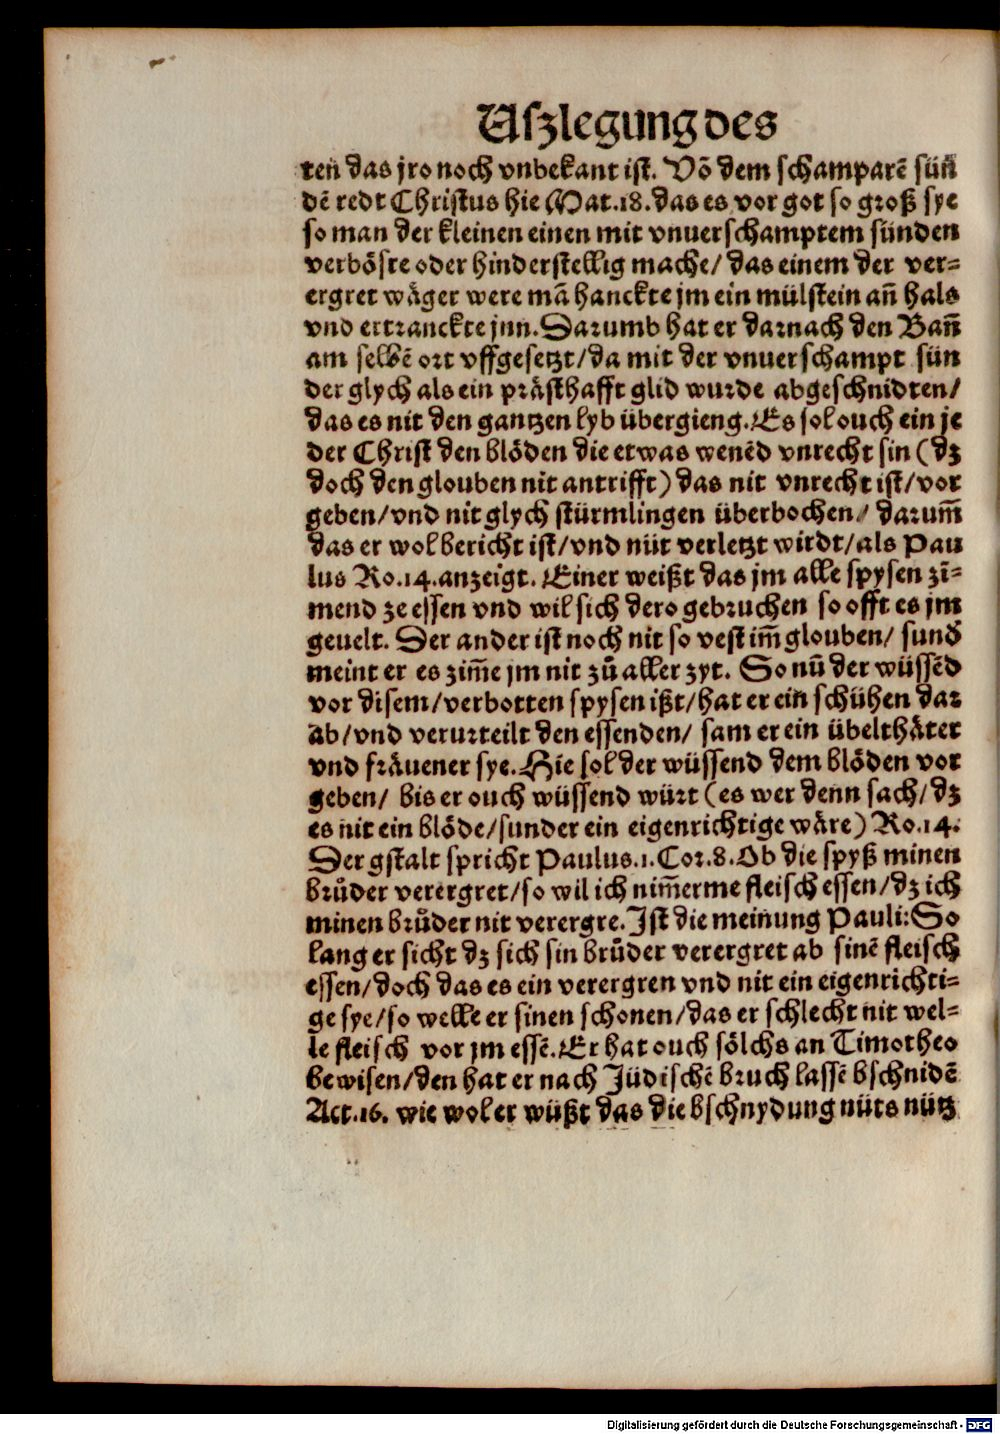 Uſzlegung des
ten das jro noch vnbekant ist. Võ dem schamparẽ sün
dẽ redt Christus hie Mat.18. das es vor got so groß sye
so man der kleinen einen mit vnuerschamptem sünden
verböſre oder hinderstellig mache/ das einem der ver⸗
ergret wäger were mã hanckte jm ein mülstein an̄ hals
vnd ertranckte jnn. Darumb hat er darnach den Ban̄
am selbẽ ort vffgesetzt/ da mit der vnuerschampt sün
der glych als ein prästhafft glid wurde abgeschnidten/
das es nit den gantzen lyb übergieng. Es sol ouch ein je
der Christ den blöden die etwas wenẽd vnrecht sin (dz
doch den glouben nit antrifft) das nit vnrecht ist/ vor
geben/ vnd nit glych stürmlingen überbochen/ darum̄
das er wol bericht ist/ vnd nüt verletzt wirdt/ als Pau
lus Ro.14. anzeigt. Einer weißt das jm alle spysen zī⸗
mend ze essen vnd wil sich dero gebruchen so offt es jm
geuelt. Der ander ist noch nit so vest im̄ glouben/ sund̕
meint er es zim̄e jm nit zů aller zyt. So nū der wüssẽd
vor disem/ verbotten spysen ißt/ hat er ein schühen dar
ab/ vnd verurteilt den essenden/ sam er ein übelthäter
vnd fräuener sye. Hie sol der wüssend dem blöden vor
geben/ bis er ouch wüssend würt (es wer denn sach/ dz
es nit ein blöde/ sunder ein eigenrichtige wäre) Ro.14.
Der gstalt spricht Paulus.1.Cor.8. Ob die spyß minen
brůder verergret/ so wil ich nim̄erme fleisch essen/ dz ich
minen brůder nit verergre. Ist die meinung Pauli: So
lang er sicht dz sich sin brůder verergret ab sinẽ fleisch
essen/ doch das es ein verergren vnd nit ein eigenrichti⸗
ge sye/ so welle er sinen schonen/ das er schlecht nit wel⸗
le fleisch vor jm essẽ. Er hat ouch sölchs an Timotheo
bewisen/ den hat er nach Jüdischẽ bruch lassẽ bschnidẽ
Act.16. wie wol er wüßt das die bschnydung nüts nütz
Digitalisierung gefördert durch die Deutsche Forschungsgemeinschaft - DFG